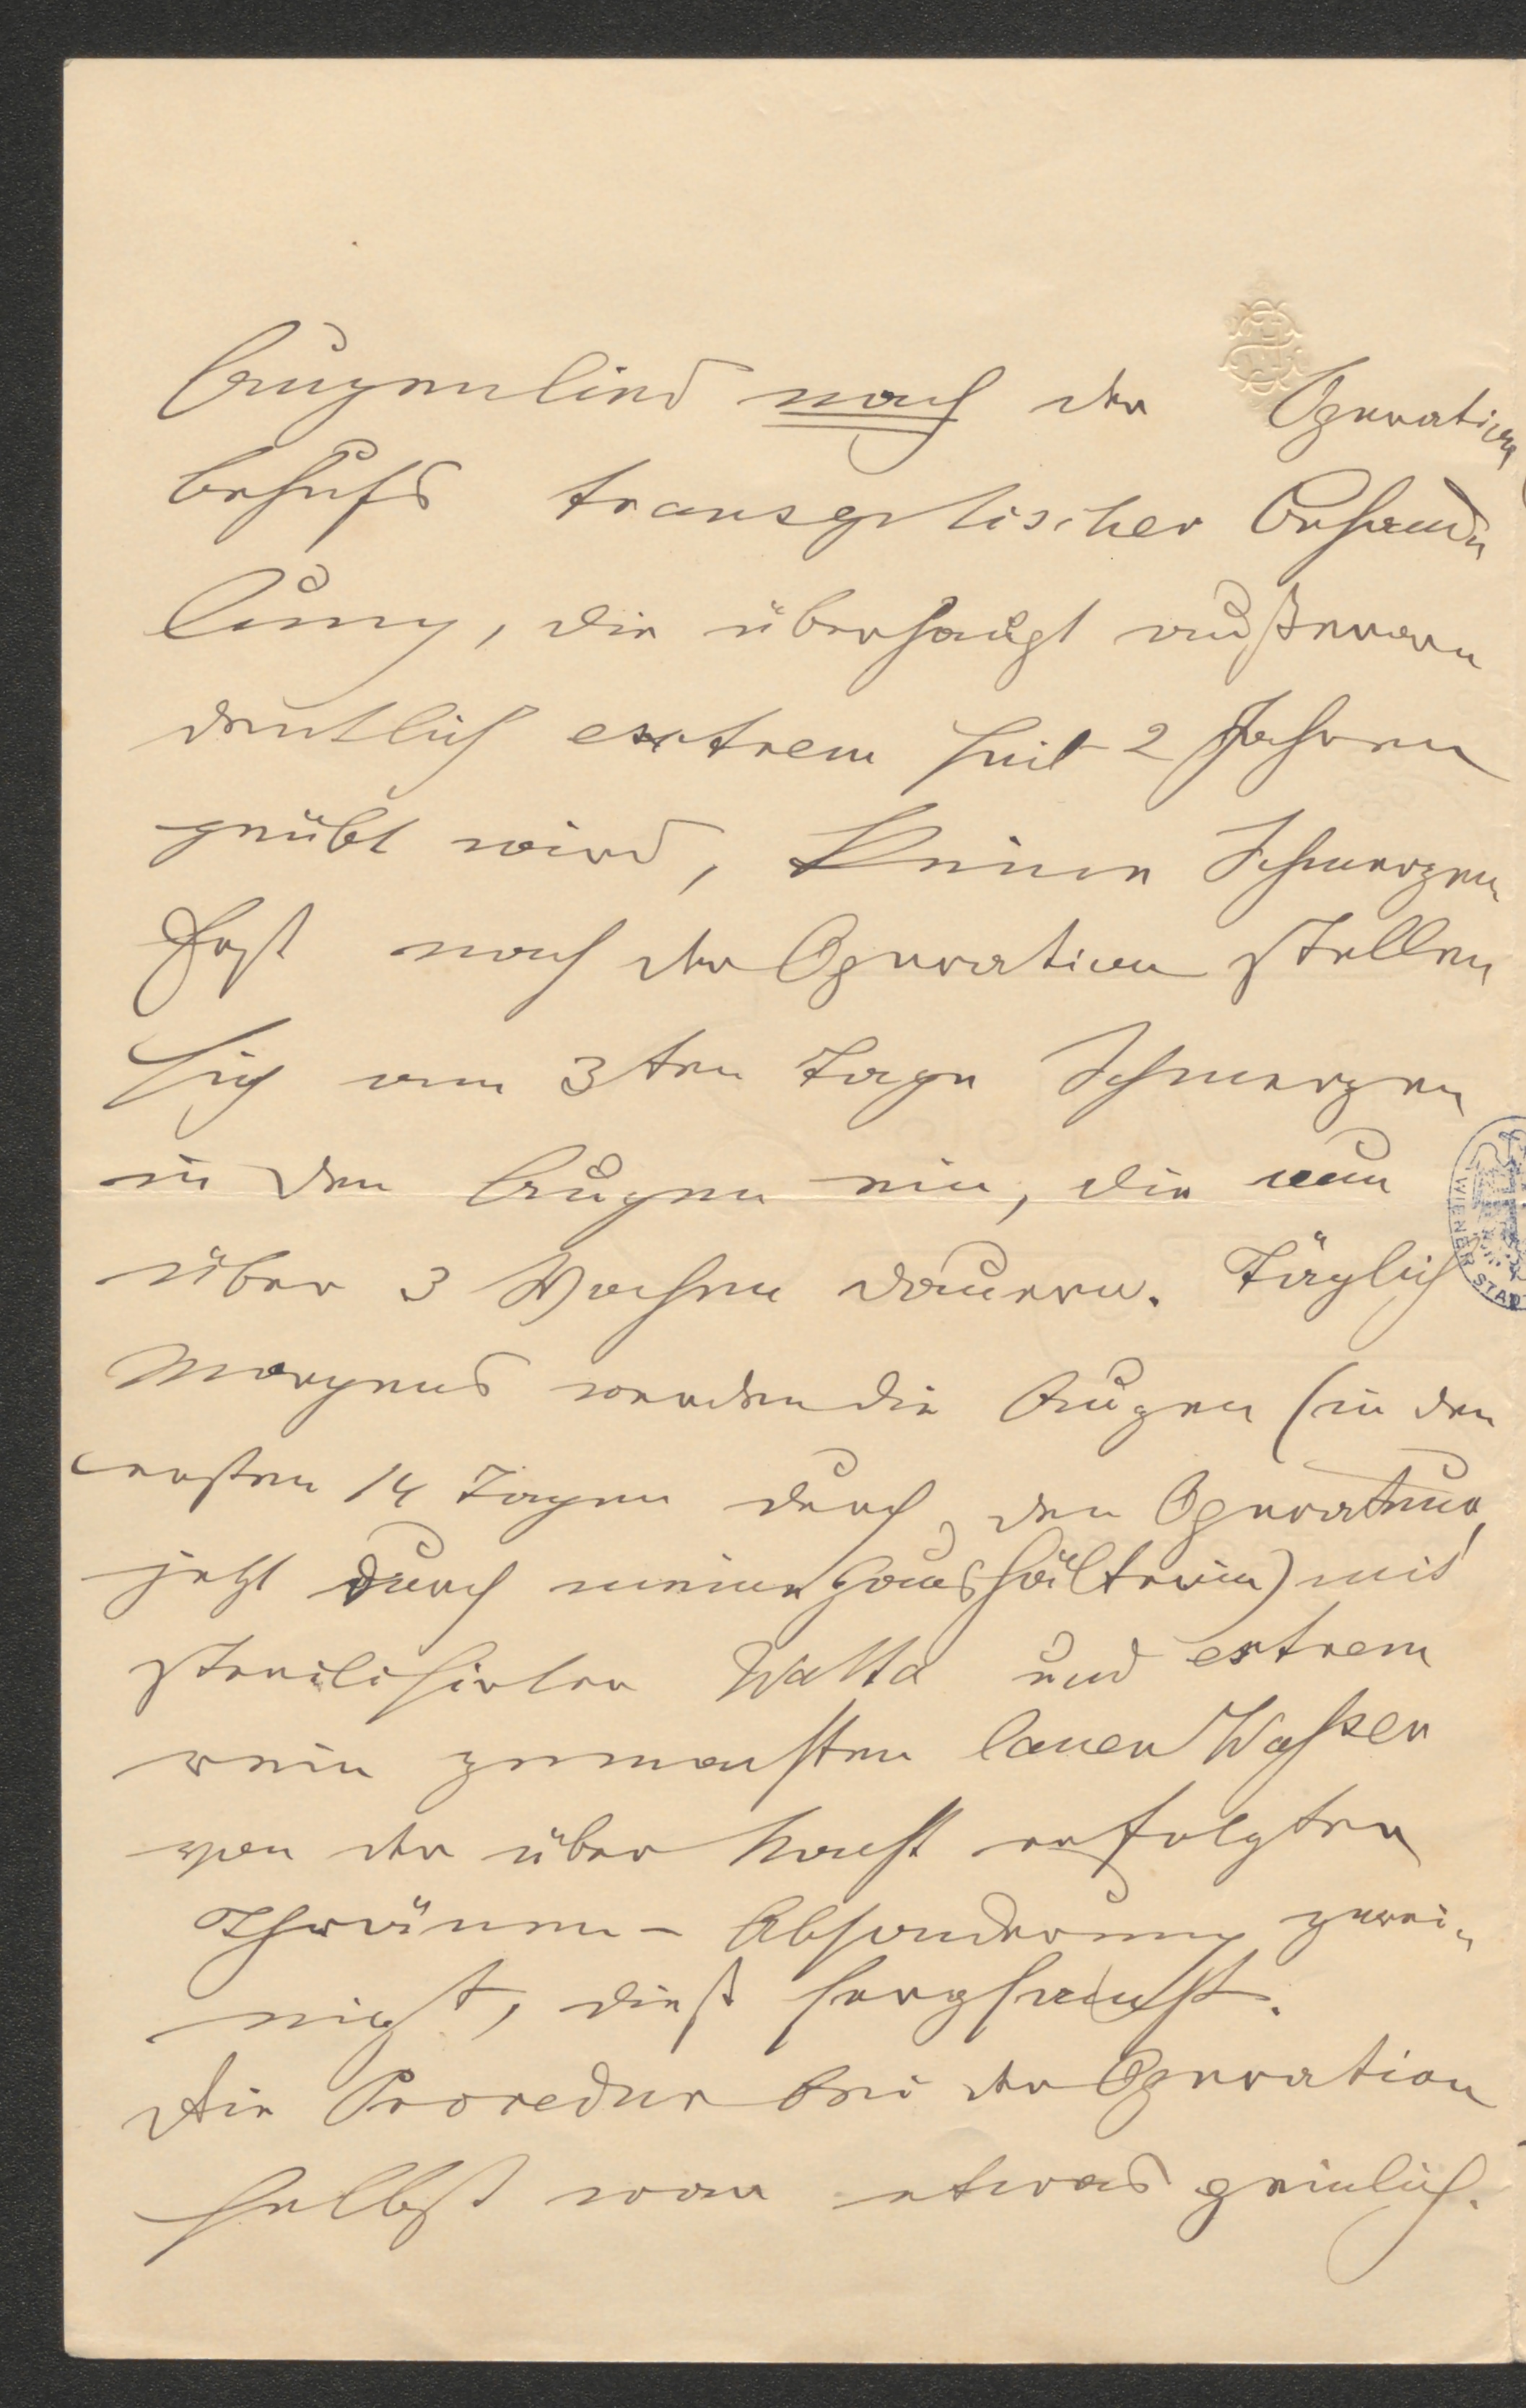 Augenlied nach der Operation
behufs transeptischer Behand„
lung, die überhaupt außeror„
dentlich extrem seit 2 Jahren
geübt wird, keine Schmerzen
Erst nach der Operation stellen
sich am 3ten Tage Schmerzen
in den Augen ein, die nun
über 3 Wochen dauern. Täglich
Morgens werden die Augen (in den
ersten 14 Tagen durch den Operateur,
jetzt durch meine Haushälterin) mit
sterilisirter Watta und extrem
rein gemachten lauen Wasser
von der über Nacht erfolgten
Thränen-Absonderung gerei„
nigt, dieß sorgsamst.
Die Procedur bei der Operation
selbst war etwas peinlich.
WIENER STADT